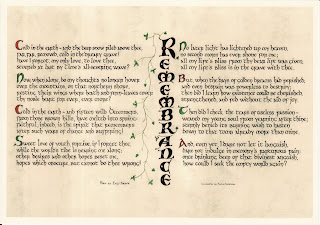 Cold in the earth – and the deep snow piled above thee,
Far, far, removed, cold in the dreary grave!
Have I forgot, my only Love, to love thee,
Severed at last by Time's all-severing wave?
Now, when alone, do my thoughts no longer hover
Over the mountains, on that northern shore,
Resting their wings where heath and fern-leaves cover
Thy noble heart for ever, ever more?
Cold in the earth – and fifteen wild Decembers,
From those brown hills, have melted into spring:
Faithful, indeed, is the spirit that remembers
After such years of change and suffering!
Sweet Love of youth, forgive, if I forget thee,
While the world's tide is bearing me along;
Other desires and other hopes beset me,
Hopes which obscure, but cannot do thee wrong!
Poem by Emily Brontë
REMEMBRANCE
No later light has lightened up my heaven,
No second morn has ever shone for me;
All my life's bliss from thy dear life was given,
All my life's bliss is in the grave with thee.
But, when the days of golden dreams had perished,
And even Despair was powerless to destroy;
Then did I learn how existence could be cherished,
Strengthened, and fed without the aid of joy.
Then did I check the tears of useless passion –
Weaned my young soul from yearning after thine;
Sternly denied its burning wish to hasten
Down to that tomb already more than mine.
And, even yet, I dare not let it languish,
Dare not indulge in memory's rapturous pain;
Once drinking deep of that divinest anguish,
How could I seek the empty world again?